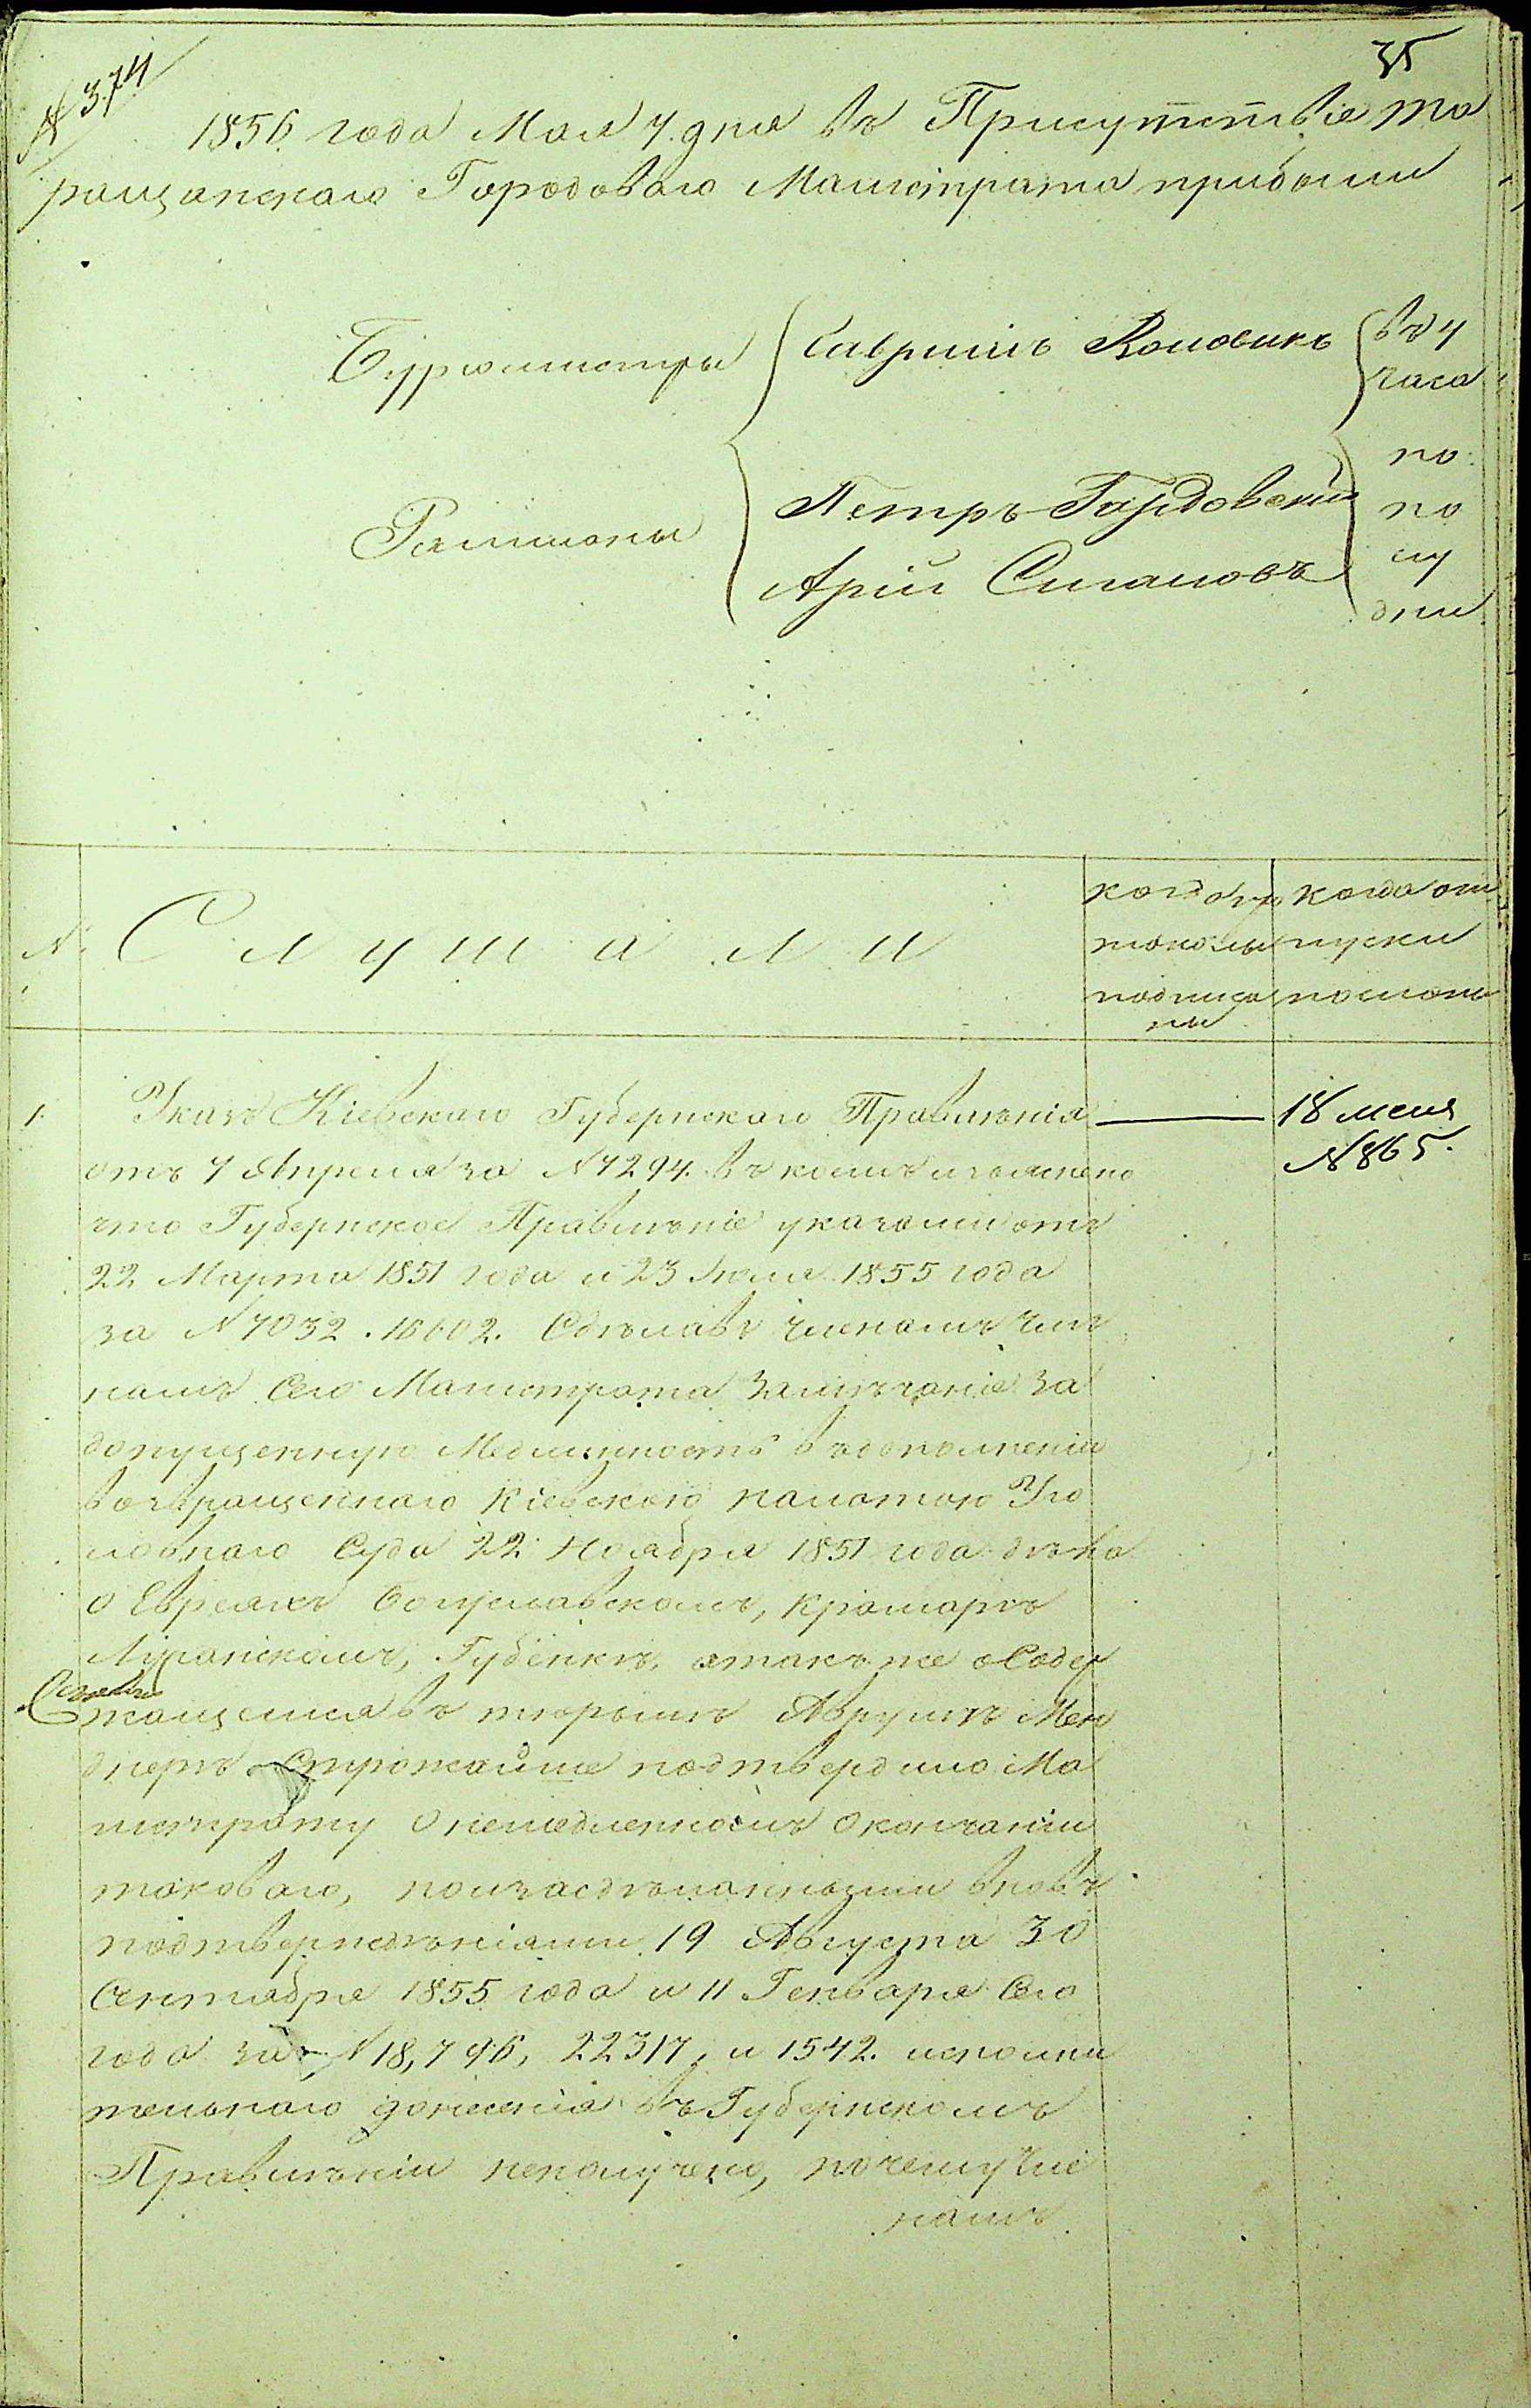 № 374
35
1856 года Мая 7 дня въ Присутствіе Та
ращанскаго Городоваго Магистрата прибыли
Бургомистры
Гаврилъ Воловикъ
въ 4
часа
Ратманы
Петръ
Арій
по
по
лу
дни
№
Слушали
когда про
токолы
подписа
ны
когда от
пуски
посланы
1.
Указъ Кіевскаго Губернскаго Правленія
18 мая
№ 865.
отъ 7 Апреля за №7294. въ коемъ изъяснено
что Губернское Правленіе указами отъ
22 Марта 1851 года и 23 Іюля 1855 года
за №7032. 16602. Сдѣлавъ членамъ
сего Магистрата замѣчаніе за
допущенную Медленность въ дополненіи
возвращеннаго Кіевскою палатою Уго
ловнаго Суда 22 Ноября 1851 года дѣла
о Евреяхъ Богуславскомъ, Крамарѣ
Луганскомъ, Губенкѣ, а такъ же о Содер
жащемся въ тюрьмѣ Аврумѣ Мен
дперѣ Строжайше подтвердило Ма
гистрату о немедленномъ окончаніи
таковаго, но и за сдѣланными вновь
подтвержденіями 19 Августа 30
Сентября 1855 года и 11 Генваря сего
года за № 18,796, 22317, и 1542. исполни
тельнаго донесенія въ Губернскомъ
Правленіи неполучено, почему Чле
намъ